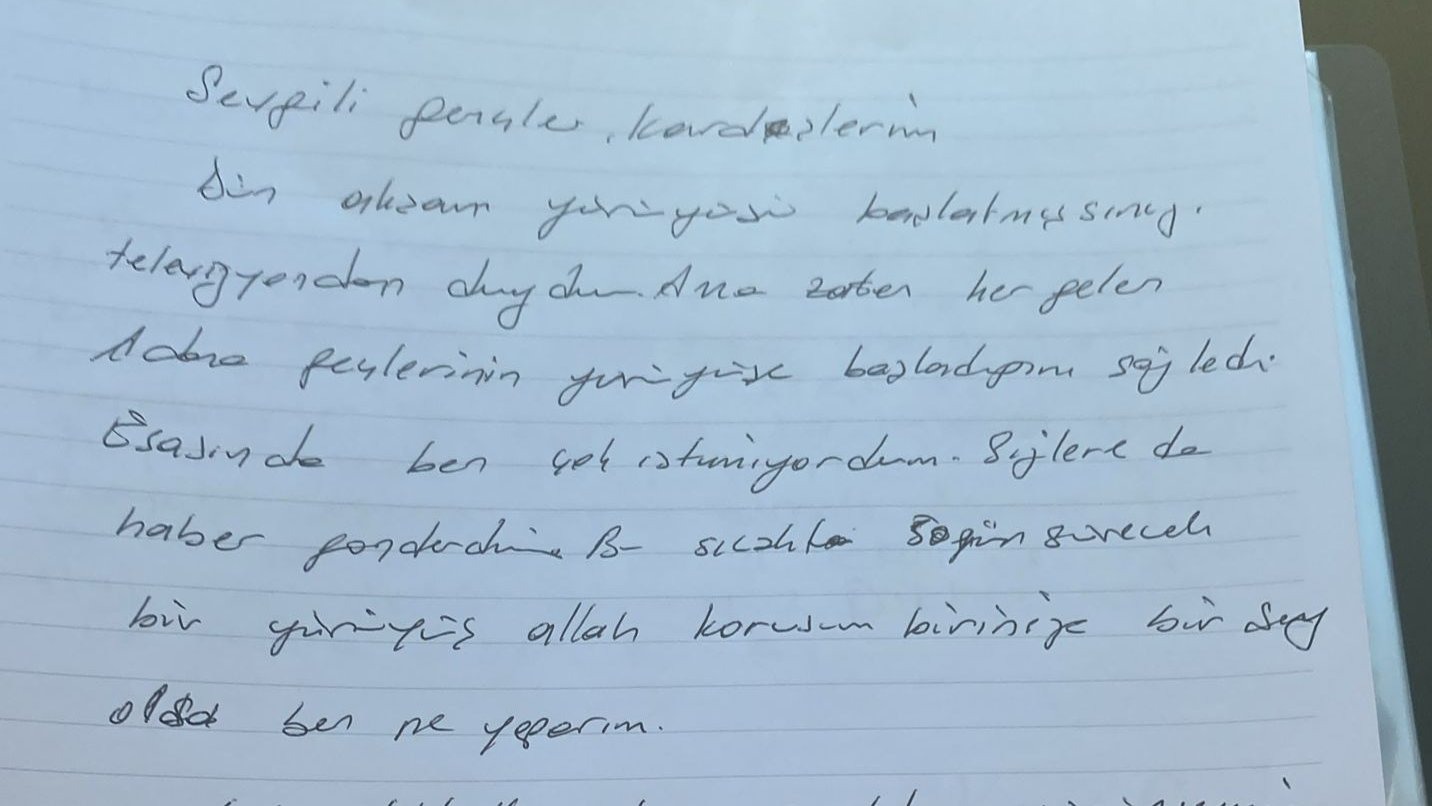 Sevgili gençler, kardeşlerim
Dün akşam yürüyüşü başlatmışsınız.
televizyondan duydum. Ama zaten her gelen
Adana gençlerinin yürüyüşe başladığını söyledi.
Esasında ben çok istemiyordum. Sizlere de
haber gönderdim. Bu sıcakta 50 gün sürecek
bir yürüyüş allah korusun birinize bir şey
olsa ben ne yaparım.